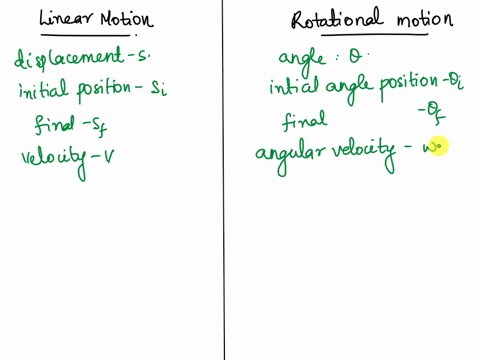 Linear Motion
displacement - s.
initial position - Si
final - Sf
velocity - v
Rotational motion
angle : θ.
intial angle position - θi
final - θf
angular velocity - ω